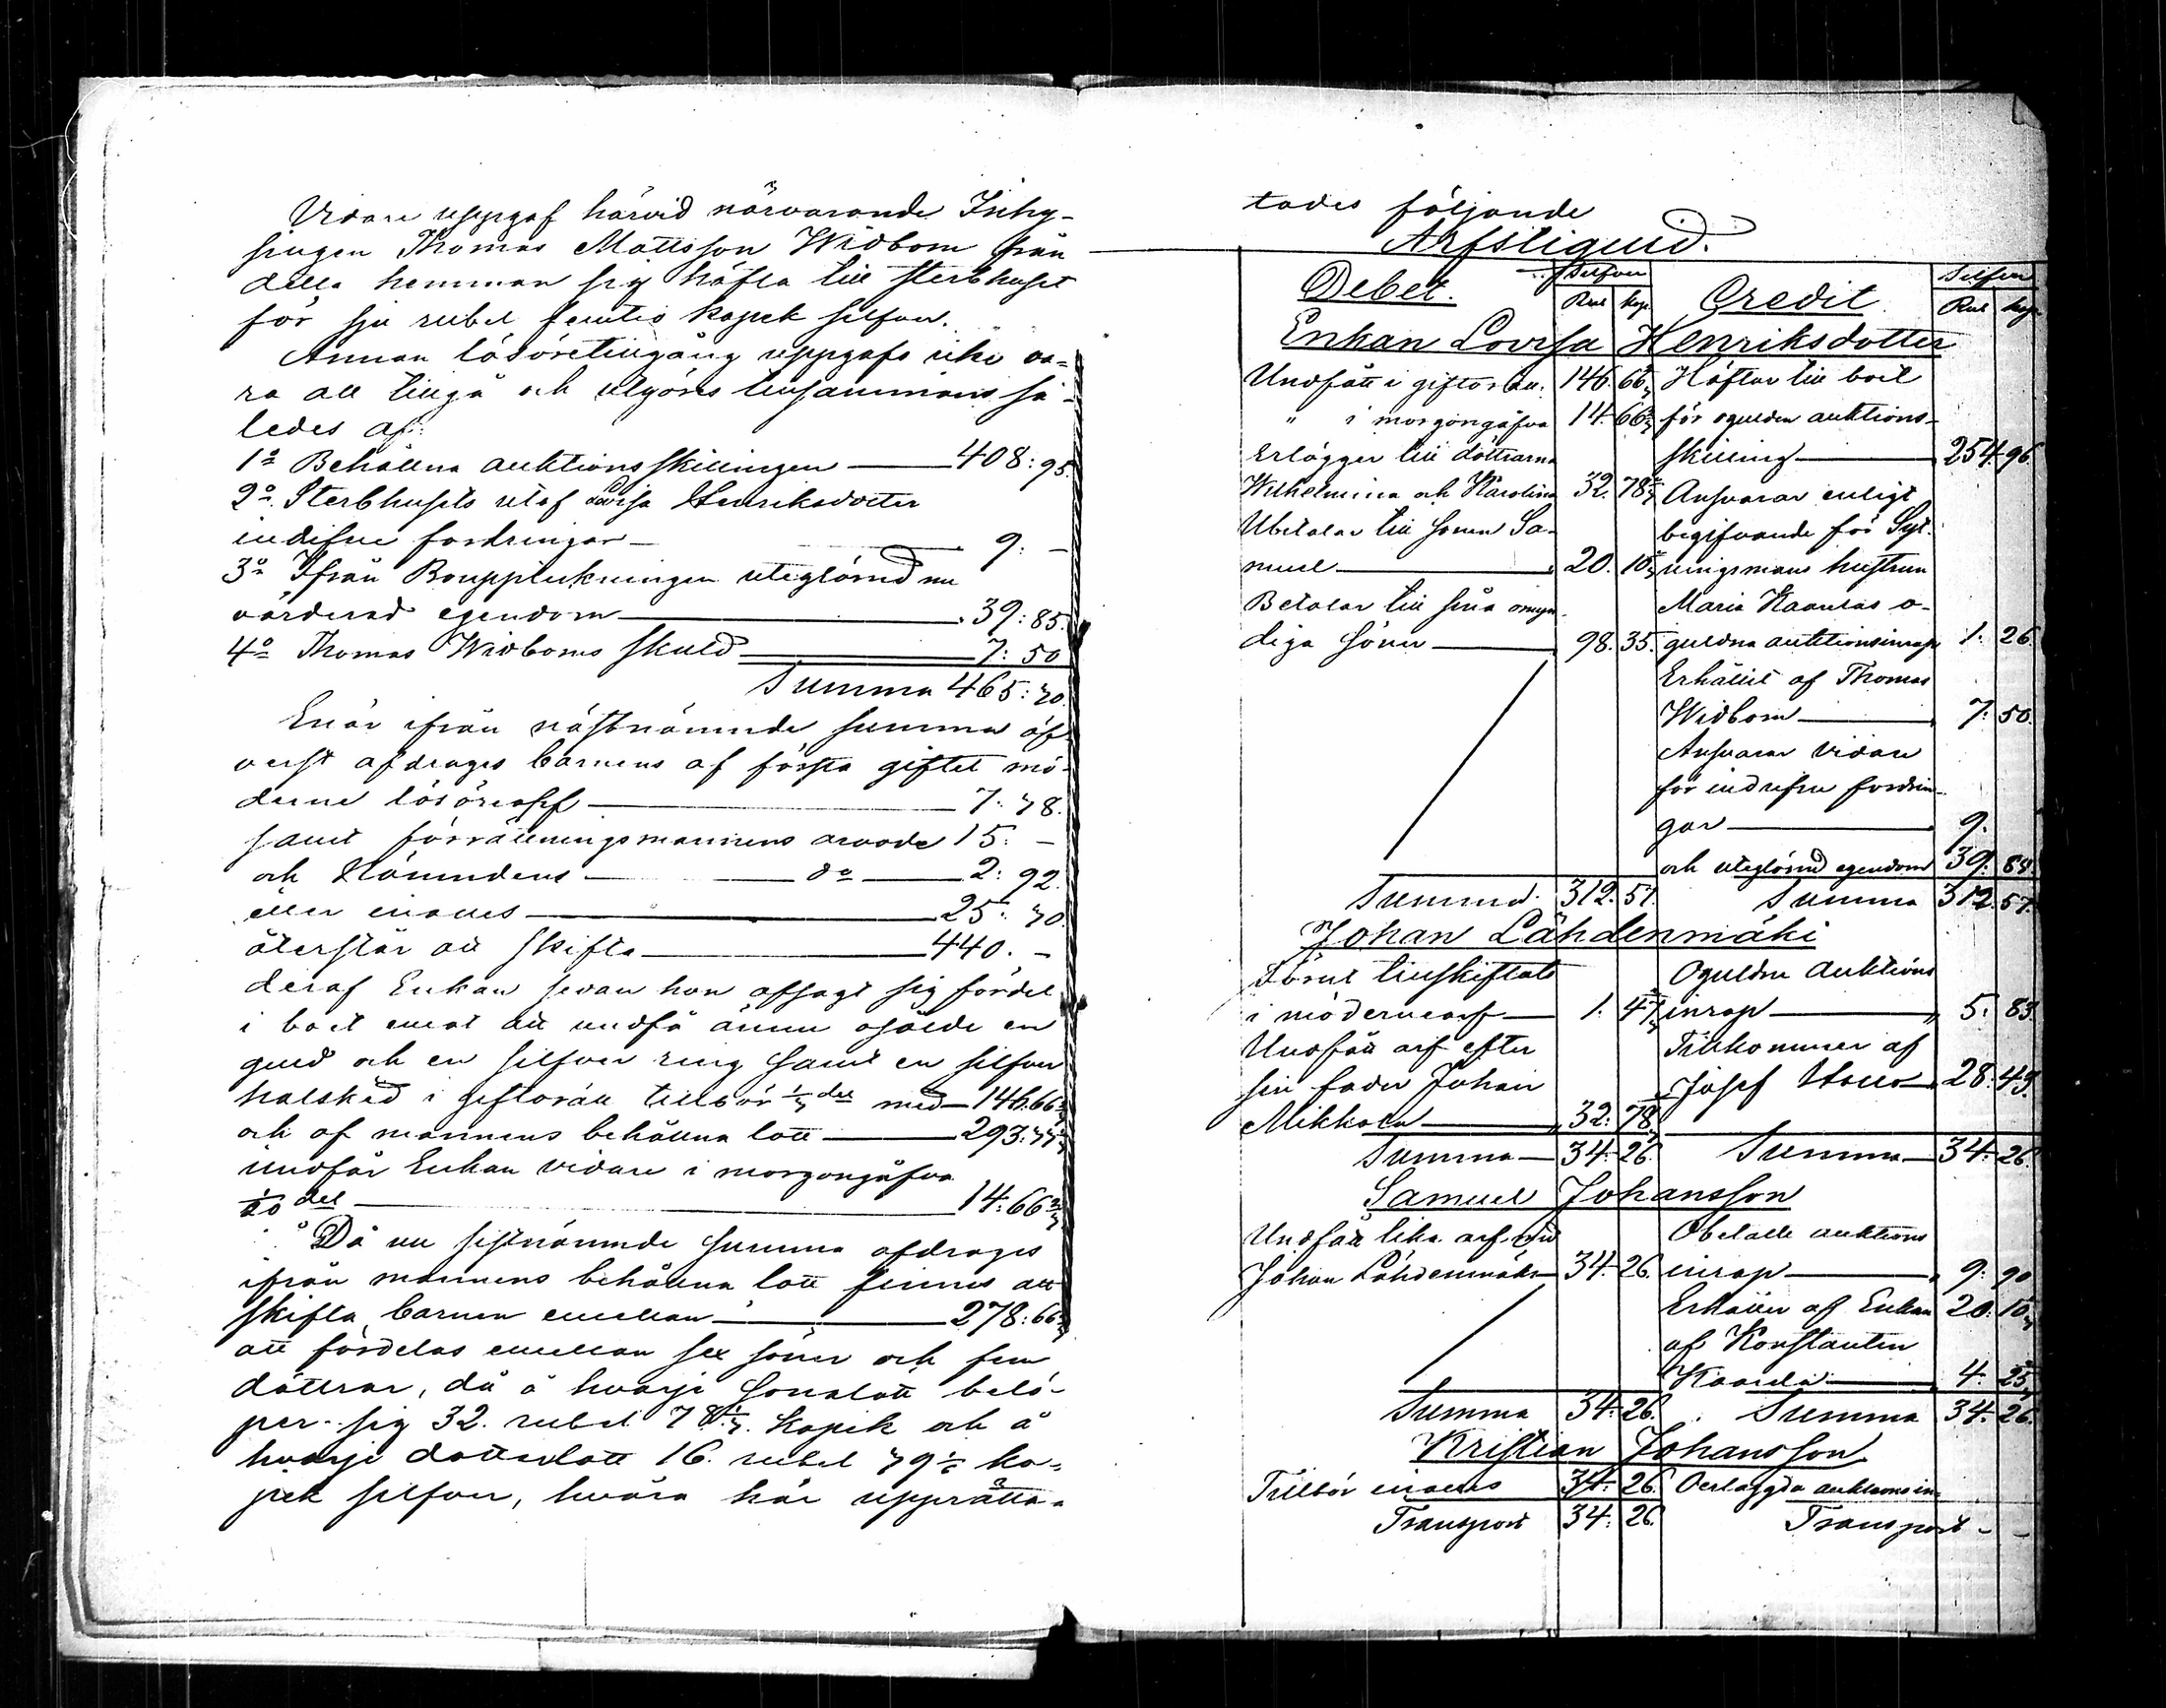 Vidare uppgaf härvid närvarande Inhy-
singen Thomas Mattsson Widbom från
detta hemman sig häfta till sterbhuset
för sju rubel femtio kopek silfver.
Annan lösöretillgång uppgafs icke va-
ra att tillgå och utgöres tillsammans så-
ledes af:
1o Behållna auktionsskillingen — 408:95.
2o Sterbhusets utaf Lovisa Henriksdotter
indrifne fordringar — 9: —
3o Ifrån Bouppteckningen uteglömd nu
värderad egendom — 39:85.
4o Thomas Widboms skuld — 7:50
Summa 465:70.
Enär ifrån nästnämnde summa öf-
verst afdrages barnens af första giftet mö-
derne lösörearf — 7:78.
samt förrättningsmannens arvode 15: —
och Nämndens — do — 2:92.
eller inalles — 25:70.
återstår att skifta — 440. —
deraf Enkan sedan hon afsagt sig fördel
i boet emot att undfå ännu osålde en
guld och en silfver ring samt en silfver
halsked i giftorätt tillbör 1/3 del med — 146.66 2/3
och af mannens behållna lott — 293:33 1/3
undfår Enkan vidare i morgongåfva
1/20 del — 14:66 2/3
Då nu sistnämnde summa afdrages
ifrån mannens behållna lott finnes att
skifta barnen emellan — 278:66 2/3
att fördelas emellan sex söner och fem
döttrar, då å hvarje sonalott belö-
per sig 32. rubel 78 kopek och å
hvarje dotterlott 16. rubel 39 ko-
pek silfver, hvåra här upprätta-
tades följande
Arfsliquid.
Debet. Silfver Credit Silfver
Rub kop. Rub kop.
Enkan Lovisa Henriksdotter
Undfått i giftorätt. 146. 66 2/3 Häftar till boet
" i morgongåfva 14. 66 2/3 för ogulden auktions-
Erlägger till döttrarna skilling — 254. 96.
Wilhelmina och Karolina 32. 78 Ansvarar enligt
Utbetalar till sonen Sa- begifvande för Syt-
muel — 20. 10 ningsmans hustrun
Betalar till sina omyn- Maria Kaarlas o-
diga söner — 98. 35. guldna auktionsinrop 1. 26.
Erhållit af Thomas
Widbom — 7. 50.
Ansvarar vidare
för indrifne fordrin-
gar — 9.
och uteglömd egendom 39. 85.
Summa. 312. 57. Summa 312. 57.
Johan Lähdenmäki
Förut tillskiftats Oguldne auktions
i mödernearf — 1. 47 inrop — 5. 83.
Undfått arf efter Tillkommer af
sin fader Johan Josef — 28. 43.
Mikkola — 32. 78
Summa — 34. 26. Summa — 34. 26.
Samuel Johansson
Undfått lika arf med Obetalte auktions
Johan Lähdenmäki — 34. 26. inrop — 9. 90
Erhåller af Enkan 20. 10
af Konstantin
4. 25
Summa 34. 26. Summa 34. 26.
Kristian Johansson
Tillbör inalles 34. 26. Oerlaggda auktions in-
Transport 34. 26. Transport - -